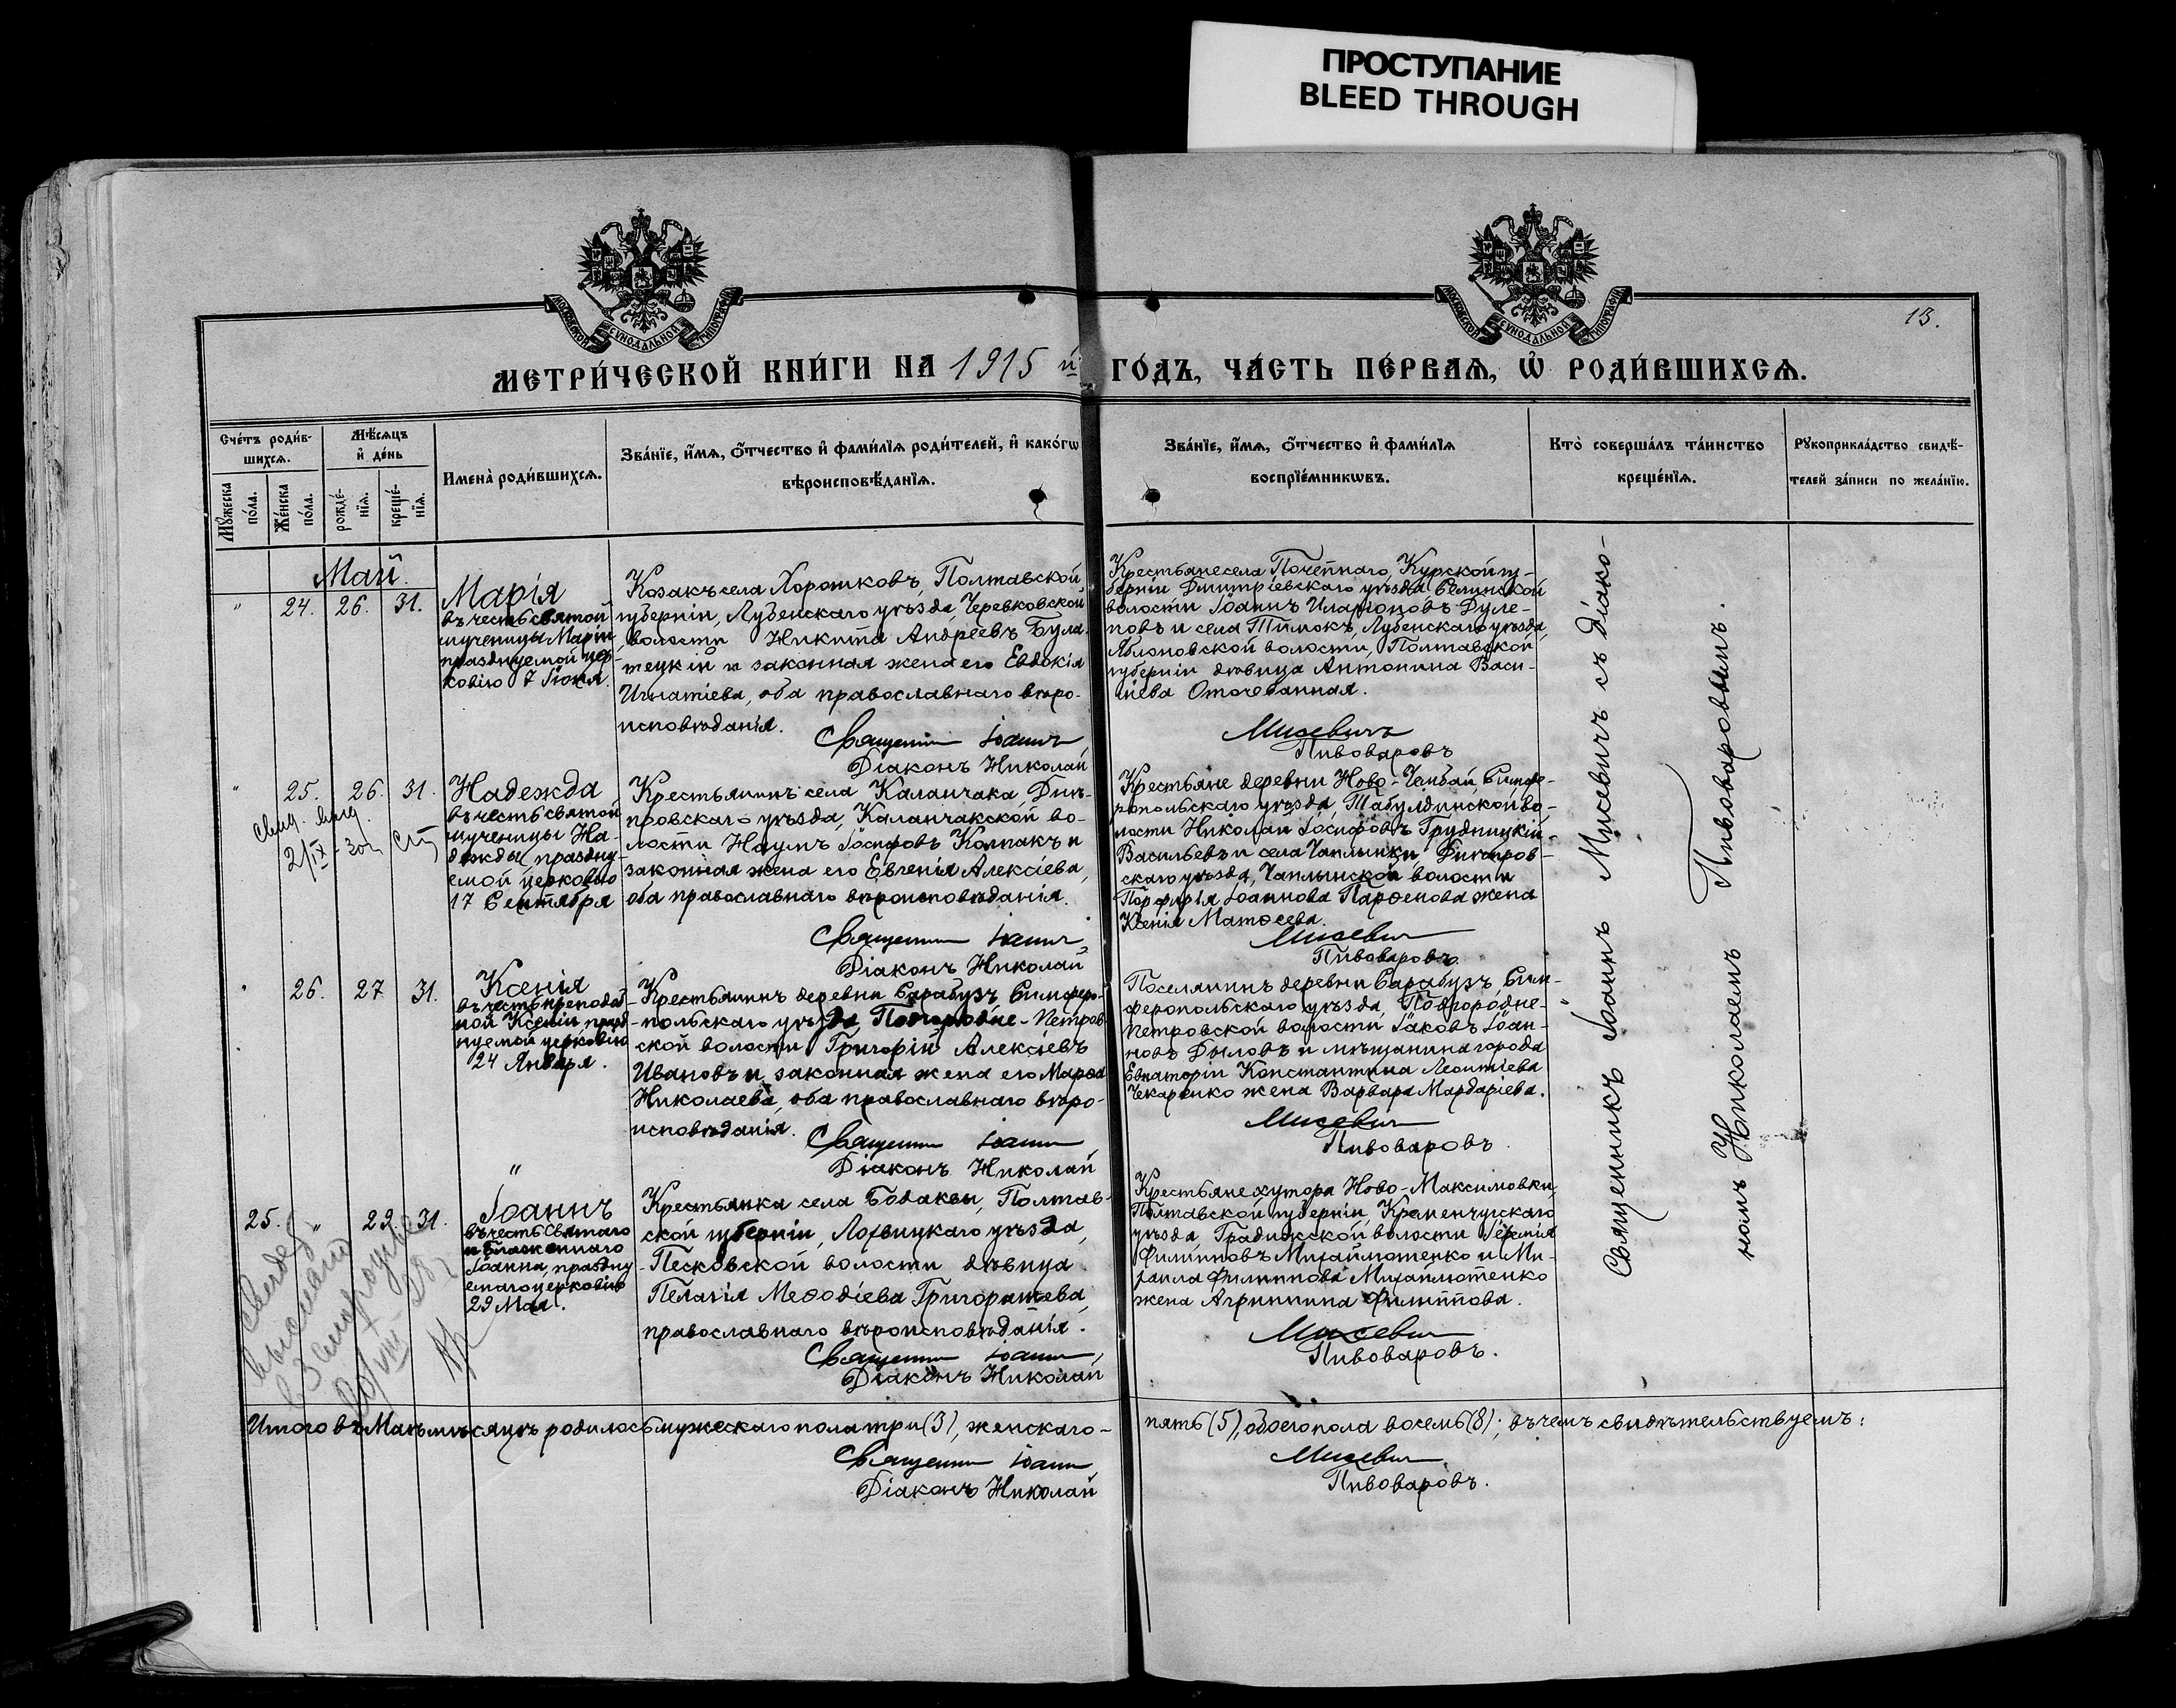 ПРОСТУПАНИЕ
BLEED THROUGH
МОСКОВСКОЙ СѴНОДАЛЬНОЙ ТИПОГРАФІИ
МОСКОВСКОЙ СѴНОДАЛЬНОЙ ТИПОГРАФІИ
13.
МЕТРИ́ЧЕСКОЙ КНИ́ГИ НА 1915 й ГОДЪ, ЧА́СТЬ ПЕ́РВАѦ, Ѡ РОДИ́ВШИХСѦ.
Сче́тъ роди́в-
шихсѧ.
Мѣ́сѧцъ
и҆ де́нь
Мꙋ́жеска
по́ла.
Же́нска
по́ла.
рожде́-
нїѧ.
креще́-
нїѧ.
Имена̀ роди́вшихсѧ.
Зва́нїе, и҆́мѧ, ѻ҆́тчество и҆ фами́лїѧ роди́телей, и҆ како́гѡ
вѣроисповѣ́данїѧ.
Зва́нїе, и҆́мѧ, ѻ҆́тчество и҆ фами́лїѧ
воспрїе́мникѡвъ.
Кто̀ соверша́лъ та́инство
креще́нїѧ.
Рꙋкоприкла́дство свидѣ́-
телей за́писи по жела́нїю.
Май.
" 24. 26. 31.
Марія
въ честь святой
мученицы Маріи,
празднуемой цер-
ковію 7 Іюня.
Козакъ села Хорошковъ, Полтавской
губерніи, Лубенскаго уѣзда, Черевковской
волости Никита Андреевъ Була-
тецкій и законная жена его Евдокія
Игнатіева, оба православнаго вѣро-
исповѣданія.
Священникъ Іоаннъ
Діаконъ Николай
Крестьяне села Почепнаго, Курской гу-
берніи Дмитріевскаго уѣзда,
волости Іоаннъ Иларіоновъ Дуле-
повъ и села Тимокъ, Лубенскаго уѣзда,
Яблоновской волости, Полтавской
губерніи дѣвица Антонина Васи-
ліева
Мисевичъ
Пивоваровъ
" 25. 26. 31.
Свид. выд.
2/IX
Надежда
въ честь святой
мученицы На-
дежды, праздну-
емой церковію
17 Сентября
Крестьянинъ села Каланчака, Днѣ-
провскаго уѣзда, Каланчакской во-
лости Наумъ Іосифовъ Колпакъ и
законная жена его Евгенія Алексіева,
оба православнаго вѣроисповѣданія.
Священникъ Іоаннъ,
Діаконъ Николай
Крестьяне деревни Ново-Чембай, Симфе-
ропольскаго уѣзда, Табулдинской во-
лости Николай Іосифовъ Грудницкій-
Васильевъ и села Чаплынки, Днѣпров-
скаго уѣзда, Чаплынской волости
Порфирія Іоаннова Парѳенова жена
Ксенія Матѳеева.
Мисевичъ
Пивоваровъ
" 26. 27 31.
Ксенія
въ честь преподоб-
ной Ксеніи, празд-
нуемой церковію
24 Января.
Крестьянинъ деревни Сарабузъ Симферо-
польскаго уѣзда, Подгородне-Петров-
ской волости Григорій Алексіевъ
Ивановъ и законная жена его Марѳа
Николаева, оба православнаго вѣро-
исповѣданія.
Священникъ Іоаннъ
Діаконъ Николай
Поселянинъ деревни Сарабузъ Сим-
феропольскаго уѣзда, Подгородне-
Петровской волости Іаковъ Іоан-
новъ Дыловъ и мѣщанина города
Евпаторіи Константина Леонтіева
Чекаренко жена Варвара Мардаріева.
Мисевичъ
Пивоваровъ.
25. " 29. 31.
"
Іоаннъ
въ честь Святаго
и Блаженнаго
Іоанна, праздну
емаго церковію
29 Мая.
Крестьянка села Бодаквы, Полтав-
ской губерніи, Лохвицкаго уѣзда,
Песковской волости дѣвица
Пелагія Меѳодіева Григорашева,
православнаго вѣроисповѣданія.
Священникъ Іоаннъ,
Діаконъ Николай
Крестьяне хутора Ново-Максимовки,
Полтавской губерніи, Кременчугскаго
уѣзда, Градижской волости Іеремія
Филипповъ Михайлютенко и Ми-
хаила Филиппова Михайлютенко
жена Агриппина Филиппова.
Мисевичъ
Пивоваровъ.
Священникъ Іоаннъ Мисевичъ съ діако-
номъ Николаемъ Пивоваровымъ.
Итого въ Маѣ мѣсяцѣ родилось мужескаго пола три (3), женскаго- пять (5), обоего пола восемь (8); въ чемъ свидѣтельствуемъ:
Священникъ Іоаннъ Мисевичъ
Діаконъ Николай Пивоваровъ.